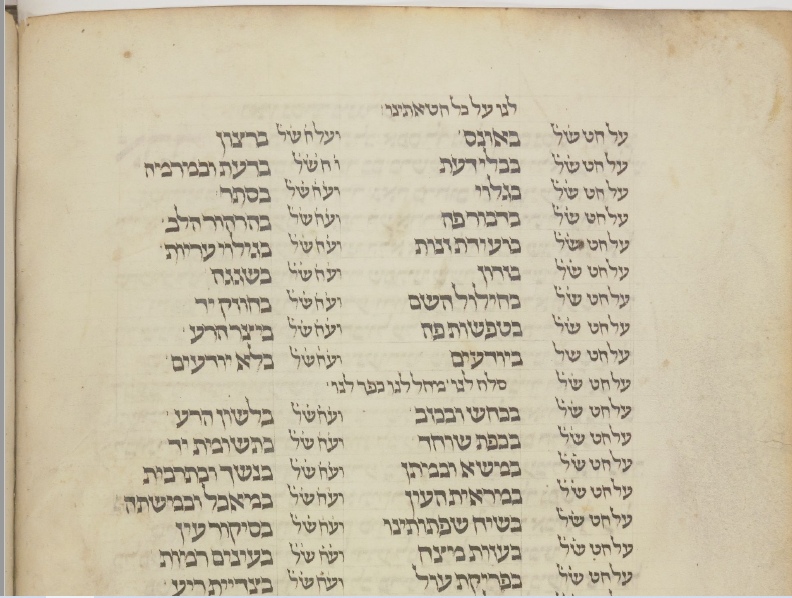 לנו על כל חטאתינו׃
על חט שׂל באונס׳ ועל ח שׂל ברצון
על חט שׂל בבלי דעת ו ח שׂל ברעת ובמרמיה
על חט שׂל בגלוי ועח שׂל בסתר
על חט שׂל בדבור פה ועח שׂל בהרהור הלב
על חט שׂל בועידת זנות ועח שׂל בגילוי עריות
על חט שׂל בזדון ועח שׂל בשגגה
על חט שׂל בחילול השם ועח שׂל בחוזק יד
על חט שׂל בטפשות פה ועח שׂל ביצר הרע
על חט של ביודעים ועח שׂל בלא יודעים
על חט שׂל סלח לנו׳ מחל לנו כפר לנו׳
על חט שׂל בכחש ובכזב ועח שׂל בלשון הרע
על חט שׂל בכפת שוחד ועח שׂל בתשומת יד
על חט שׂל במשא ובמתן ועח שׂל בנשך ובתרבית
על חט שׂל במראית העין ועח שׂל במאכל ובמישתה
על חט שׂל בשיח שפתותינו ועח שׂל בסיקור עין
על חט שׂל בעזות מיצח ועח שׂל בעינים רמות
על חט שׂל בפריקת עול ועח שׂל בצדיית ריע